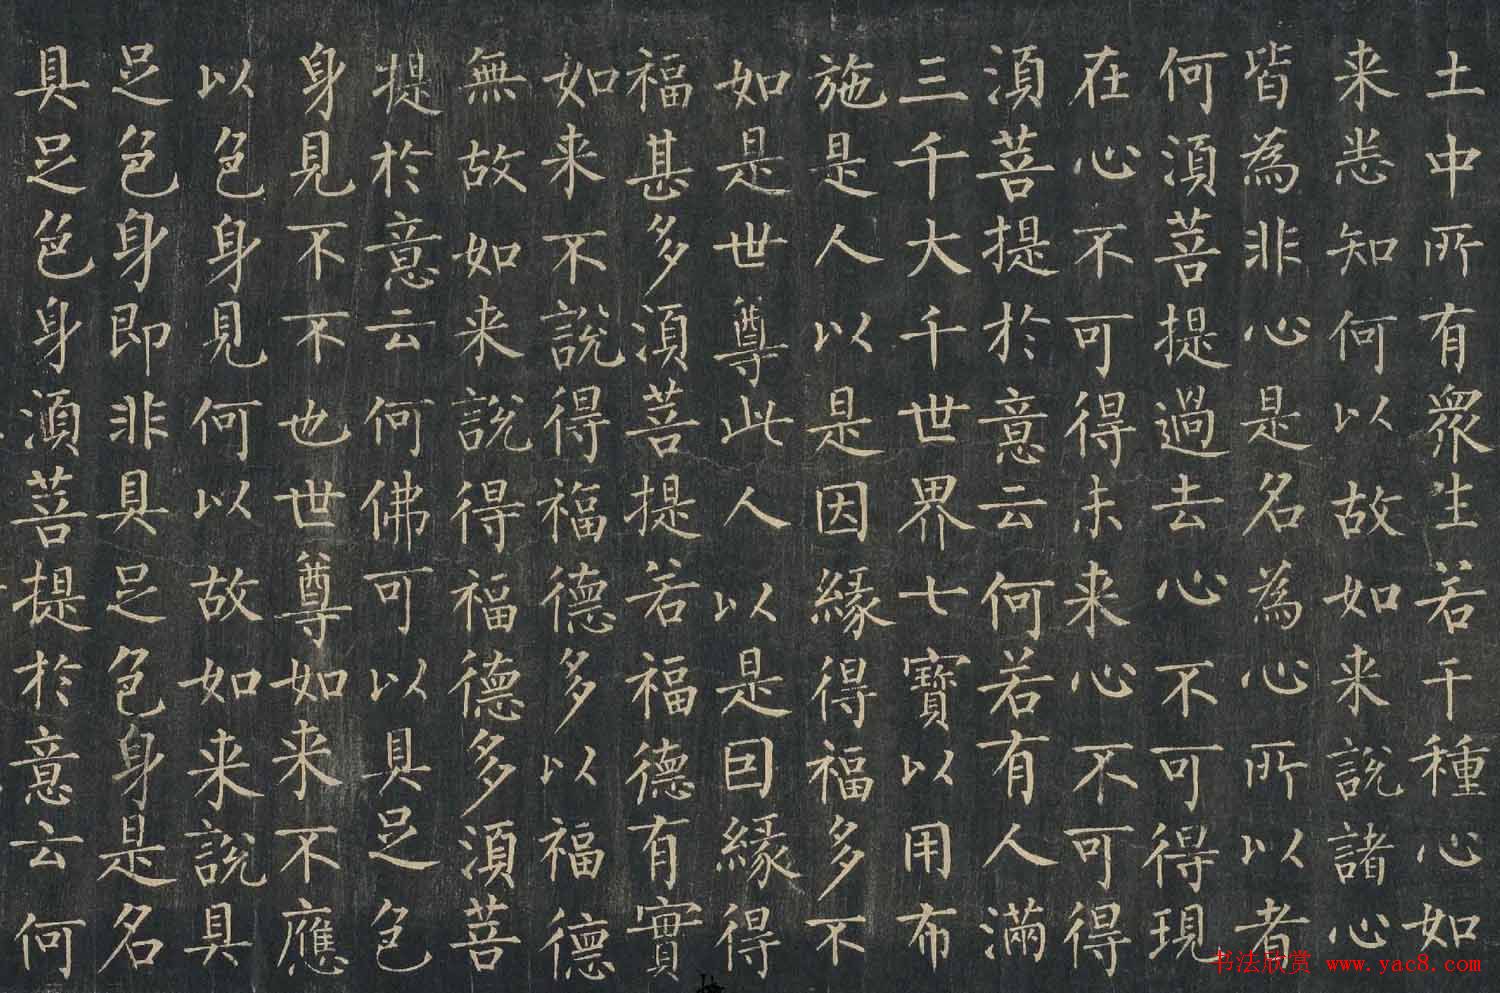 土中所有衆生若干種心如
来悉知何以故如来說諸心
皆為非心是名為心所以者
何湏菩提過去心不可得現
在心不可得未来心不可得
湏菩提於意云何若有人滿
三千大千世界七寶以用布
施是人以是因緣得福多不
如是世尊此人以是囙緣得
福甚多湏菩提若福德有實
如来不說得福德多以福德
無故如来說得福德多湏菩
提於意云何佛可以具足色
身見不不也世尊如来不應
以色身見何以故如来說具
足色身即非具足色身是名
具足色身湏菩提於意云何
书法欣赏 www.yac8.com